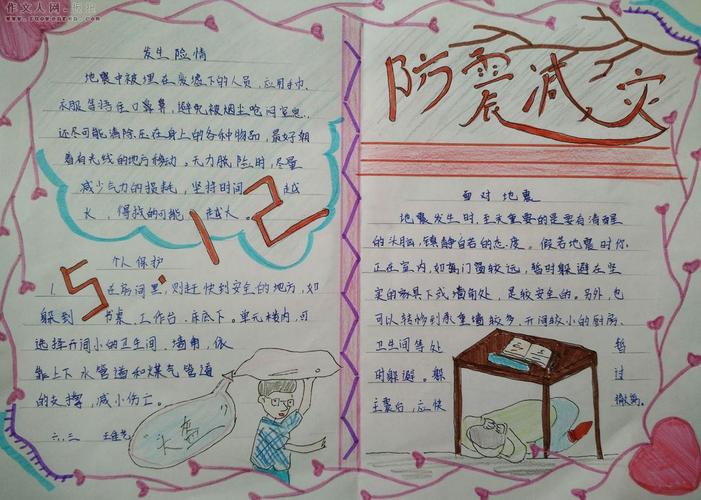 作文人网
www.zuowenren.com
发生险情
地震中被埋在废墟下的人员,应用手巾、
衣服等捂住口鼻,避免被烟尘呛闷窒息,
还尽可能清除压在身上的各种物品,最好朝
着有光线的地方移动。无力脱险用,尽量
减少气力的损耗,坚持时间 越
长,得救的可能 越大。
5.12
个人保护
1. 在房间里,则赶快到安全的地方,如
躲到 书桌、工作台、床底下。单元楼内,可
选择开间小的卫生间、墙角,依
靠上下水管道和煤气管道
的支撑,减小伤亡。
六、三 王
"头盔"
防震减灾
面对地震
地震发生时,至关重要的是要有清醒
的头脑,镇静自若的态度。假若地震时你
正在室内,如离门窗较远,暂时躲避在坚
实的家具下或墙角处,是较安全的。另外,也
可以转移到承重墙较多、开间较小的厨房、
卫生间等处 暂
时躲避。躲 过
主震后,应快 撤离。